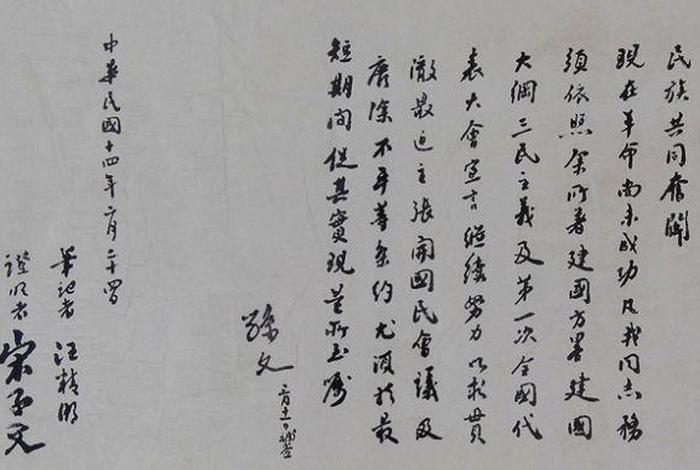 民族共同奮鬬
現在革命尚未成功凡我同志務
須依照余所著建國方畧建國
大綱三民主義及第一次全國代
表大會宣言繼續努力以求貫
澈最近主張開國民會議及
廢除不平等條約尤須於最
短期間促其實現是所至囑
孫文
三月十一日補簽
中華民國十四年二月二十四日
筆記者 汪精衛
證明者 宋子文